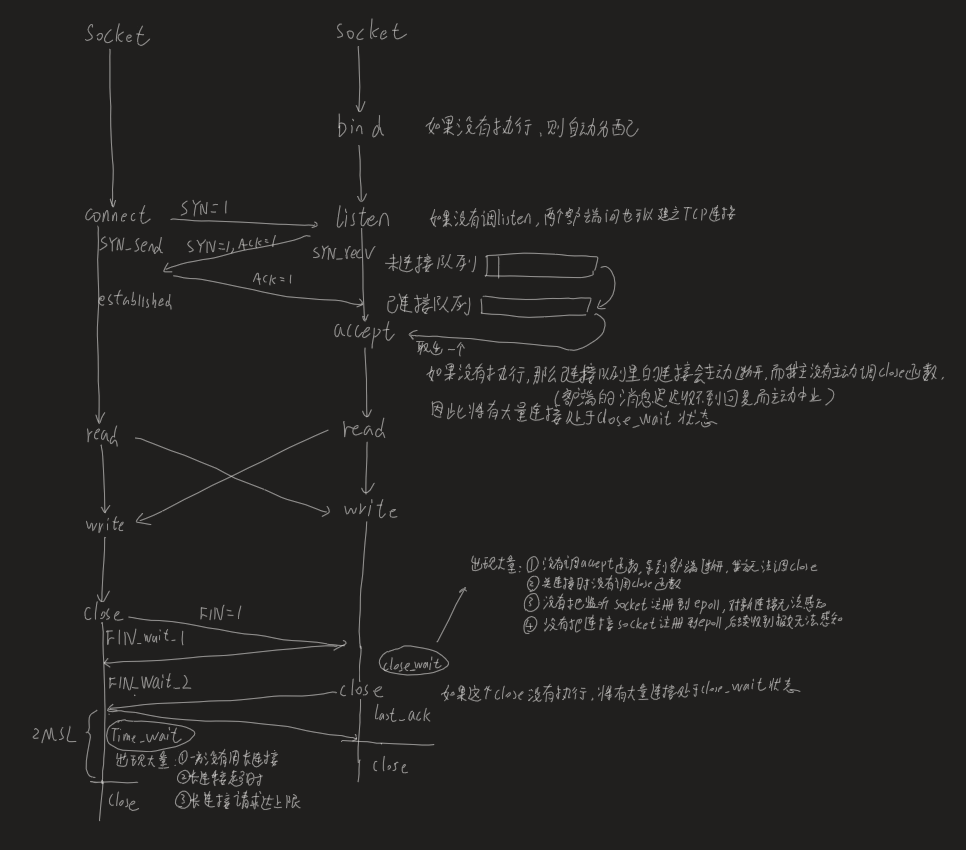 Socket
socket
bind 如果没有执行,则自动分配
connect SYN=1 listen 如果没有调listen,两个客户端间也可以建立TCP连接
SYN_send SYN=1,ACK=1 SYN_recv
未连接队列
ACK=1
established 已连接队列
accept
取出一个
如果没有执行,那么已连接队列里的连接会主动断开,而 没有主动调close函数,
(客户端的消息迟迟收不到回复而主动中止)
因此将有大量连接处于close_wait 状态
read read
write write
出现大量:①没有调accept函数,等到客户端断开, 无法调close
② 关连接时没有调close函数
③ 没有把监听 socket 注册到epoll,对新连接无法感知
④ 没有把连接 socket 注册到epoll,后续收到报文无法感知
close FIN=1
FIN_wait_1
close_wait
FIN_wait_2 close 如果这个close没有执行,将有大量连接处于close_wait状态
last_ack
2MSL Time_wait
出现大量:①一方没有用长连接
close
②长连接超时
close ③长连接请求达上限